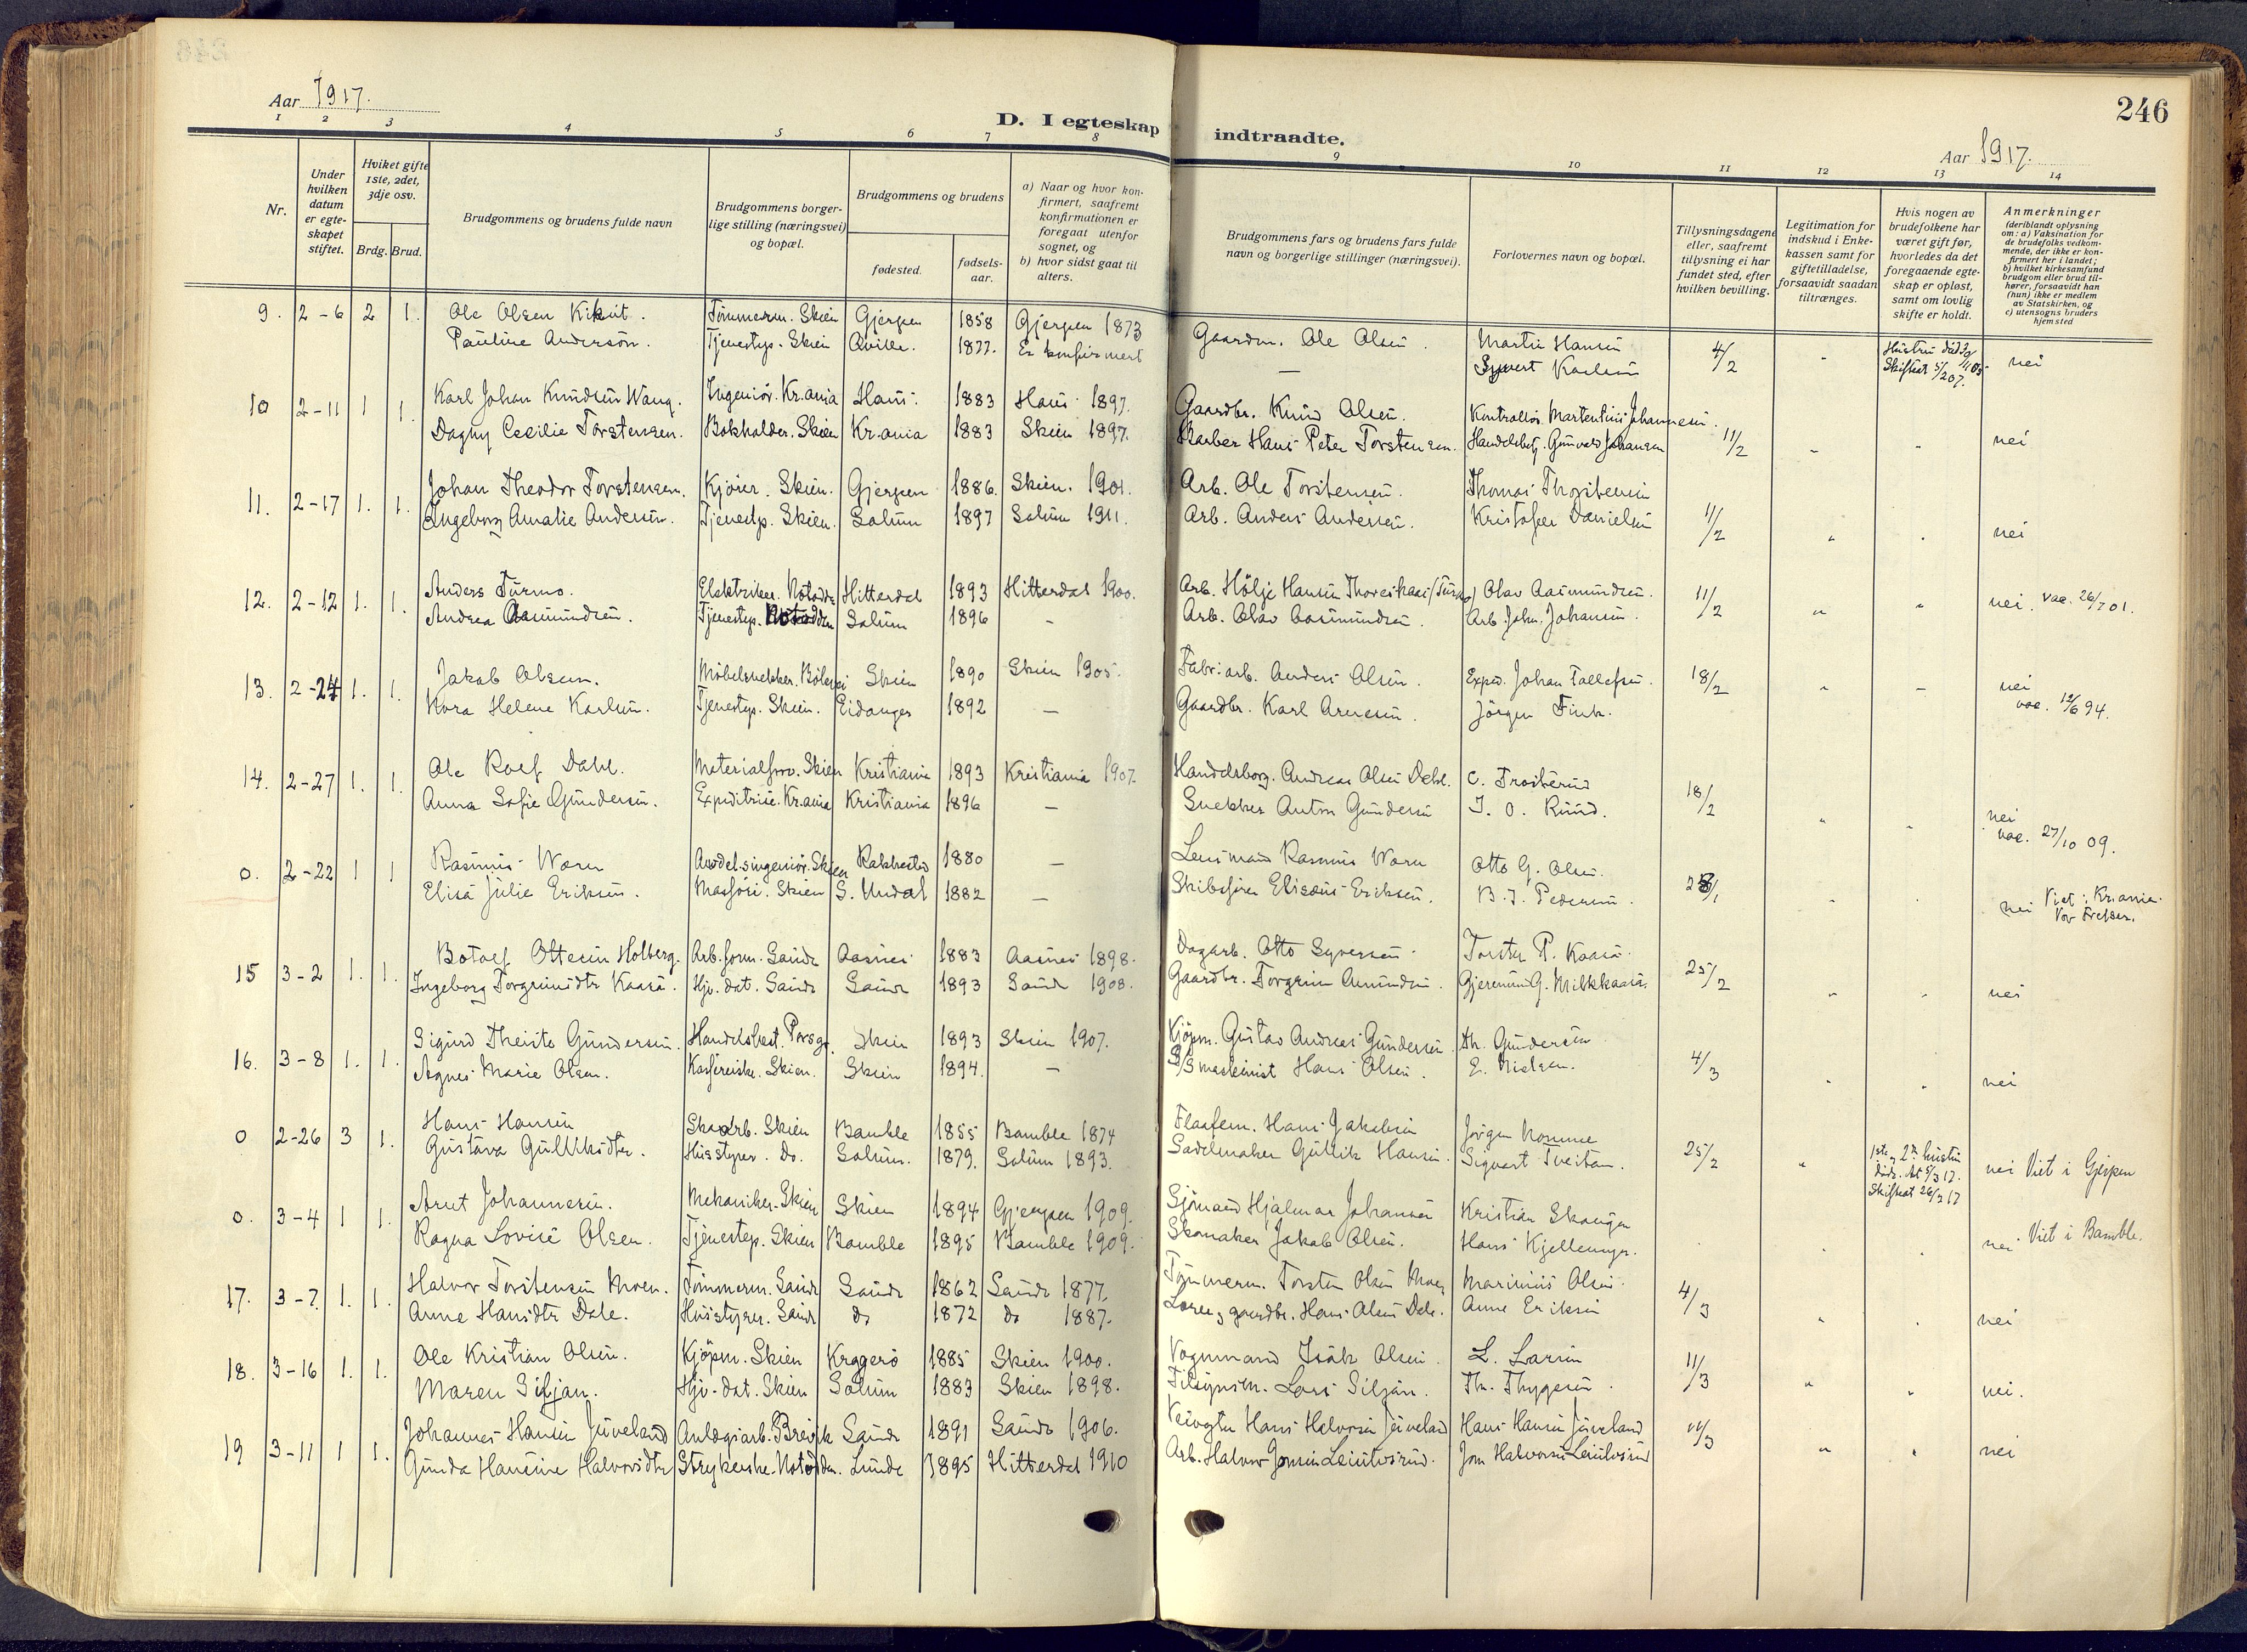 Aar 1917.
D. I egteskap indtraadte.
246
Aar 1917.
1 2 3 4 5 6 7 8 9 10 11 12 13 14
Nr.
Under hvilken datum er egte-skapet stiftet.
Hvilket gifte 1ste, 2det, 3dje osv.
Brdg. Brud.
Brudgommens og brudens fulde navn
Brudgommens borger-lige stilling (næringsvei) og bopæl.
Brudgommens og brudens
fødested.
fødsels-aar.
a) Naar og hvor kon-firmert, saafremt konfirmationen er foregaat utenfor sognet, og
b) hvor sidst gaat til alters.
Brudgommens fars og brudens fars fulde navn og borgerlige stillinger (næringsvei).
Forlovernes navn og bopæl.
Tillysningsdagene eller, saafremt tillysning ei har fundet sted, efter hvilken bevilling.
Legitimation for indskud i Enke-kassen samt for giftetilladelse, forsaavidt saadan tiltrænges.
Hvis nogen av brudefolkene har været gift før, hvorledes da det foregaaende egte-skap er opløst, samt om lovlig skifte er holdt.
Anmerkninger (deriblandt oplysning om: a) Vaksination for de brudefolks vedkom-mende, der ikke er kon-firmert her i landet; b) hvilket kirkesamfund brudgom eller brud til-hører, forsaavidt han (hun) ikke er medlem av Statskirken, og c) utensogns bruders hjemsted
9. 2-6 2 1. Ole Olsen Kikut. Tømmerm. Skien Gjerpen 1858 Gjerpen 1873 Gaardm. Ole Olsen. Martin Hansen 4/2 " nei
Pauline Anderson. Tjenestep. Skien 1877. Er konfirmert — Syvert Karlsen
10 2-11 1 1. Karl Johan Knudsen Wang. Ingeniør. Kr.ania Haus 1883 Haus 1897. Gaardbr. Knud Olsen. Kontrollør Martentius Johannesen. 11/2 " " nei
Dagny Cecilie Torstensen. Bokholder. Skien Kr.ania 1883 Skien 1897. Barber Hans Peter Torstensen. Handelsbetj. Gunvald Johansen
11. 2-17 1. 1. Johan Theodor Torstensen. Kjører. Skien. Gjerpen 1886. Skien. 1901. Arb. Ole Torstensen. Thomas Thorstensen 11/2 " " nei
Ingeborg Amalie Andersen. Tjenestp. Skien. Solum 1897 Solum 1911. Arb. Anders Andersen. Kristofer Danielsen
12. 2-12 1. 1. Anders Turmo. Elektriker. Notodde Hitterdal 1893 Hitterdal 1900. Arb. Hølje Hansen Olav Aasmundsen. 11/2 " " nei. vac. 26/7 01.
Andrea Aasmundsen. Tjenestep. Notodden Solum 1896 - Arb. Olav Aasmundsen. Arb. Johs. Johansen.
13. 2-24 1. 1. Jakob Olsen. Møbelsnekker. Bølevei Skien 1890 Skien 1905. Fabr.arb. Anders Olsen. Exped. Johan Tollefsen. 18/2 " - nei
Nora Helene Karlsen. Tjenestep. Skien. Eidanger 1892 — Gaardbr. Karl Arnesen. Jørgen Fink. vac. 12/6 94.
14. 2-27 1. 1. Ole Rolf Dahl. Materialforv. Skien Kristiania 1893 Kristiania 1907. Handelsborg. Andreas Olsen Dahl. C. Trosterud 18/2 " " nei
Anna Sofie Gundersen. Expeditrice. Kr.ania Kristiania 1896 — Snekker Anton Gundersen J. O. Ruud. vac. 27/10 09.
0. 2-22 1 1 Rasmus Warn Avdel.singeniør. Skien Rakkestad 1880 — Lensmand Rasmus Warn Otto G. Olsen. 28/1 " . nei Viet i Kr.ania. Vor Frelser.
Elisa Julie Eriksen. Massøse. Skien S. Undal 1882 — Skibsfører Elisæus Eriksen. B. J. Pedersen.
15 3-2 1. 1. Botolf Ottesen Holberg. Arb.form. Saude Aasnes 1883 Aasnes 1898. Dagarb. Otto Syversen. Torsten P. Kaasa. 25/2 " " nei
Ingeborg Torgrimsdtr Kaasa. Hjv. dat. Saude Saude 1893 Saude 1908. Gaardbr. Torgrim Amundsen.
16. 3-8 1. 1. Sigurd Theiste Gundersen. Handelsbest. Porsgr. Skien 1893 Skien 1907. Kjøpm. Gustav Andreas Gundersen. Th. Gundersen 4/3 " " nei
Agnes Marie Olsen. Kassererske. Skien. Skien 1894. — S/S maskinist Hans Olsen. E. Nielsen.
0 2-26 3 1. Hans Hansen Skoarb. Skien Bamble 1855 Bamble 1874 Hans Jakobsen Jørgen Nomme 25/2 " 1ste og 2den hustru døde. At. 5/3 17. Skiftet 26/2 17 nei Viet i Gjerpen
Gustava Gulliksdtr. Husstyrer. Do. Solum. 1879. Solum 1893. Sadelmaker Gullik Hansen. Sigvart Tveitan.
0. 3-4 1 1. Arnt Johannesen. Mekaniker. Skien Skien 1894 Gjerpen 1909. Sjømand Hjalmar Johansen Kristian Skougen " " nei Viet i Bamble.
Ragna Lovise Olsen. Tjenestep. Skien Bamble 1895 Bamble 1909. Skomaker Jakob Olsen. Hans Kjellemyr.
17. 3-7 1. 1. Halvor Torstensen Moen. Tømmerm. Saude Saude 1862 Saude 1877. Tømmerm. Torsten Olsen Moen Marinius Olsen. 4/3 " " nei
Anne Hansdtr Dale. Husstyrer. Saude do 1872 do 1887. Lærer og gaardbr. Hans Olsen Dale. Anne Eriksen
18. 3-16 1. 1. Ole Kristian Olsen. Kjøpm. Skien Kragerø 1885 Skien 1900. Vognmand Isak Olsen. L. Larsen 11/3 " " nei.
Maren Siljan. Hjv. dat. Skien Solum 1883 Skien 1898. Tilsynsm. Lars Siljan. Th. Thygesen.
19 3-11 1 1. Johannes Hansen Juveland Anlægsarb. Brevik Saude 1891 Saude 1906. Veivogter Hans Halvorsen Juveland Hans Hansen Juveland 11/3 " " nei
Gunda Hansine Halvorsdtr Strykerske. Notodden. Lunde 1895 Hitterdal 1910 Arb. Halvor Jonsen Leiulvsrud. Jon Halvorsen Leiulvsrud